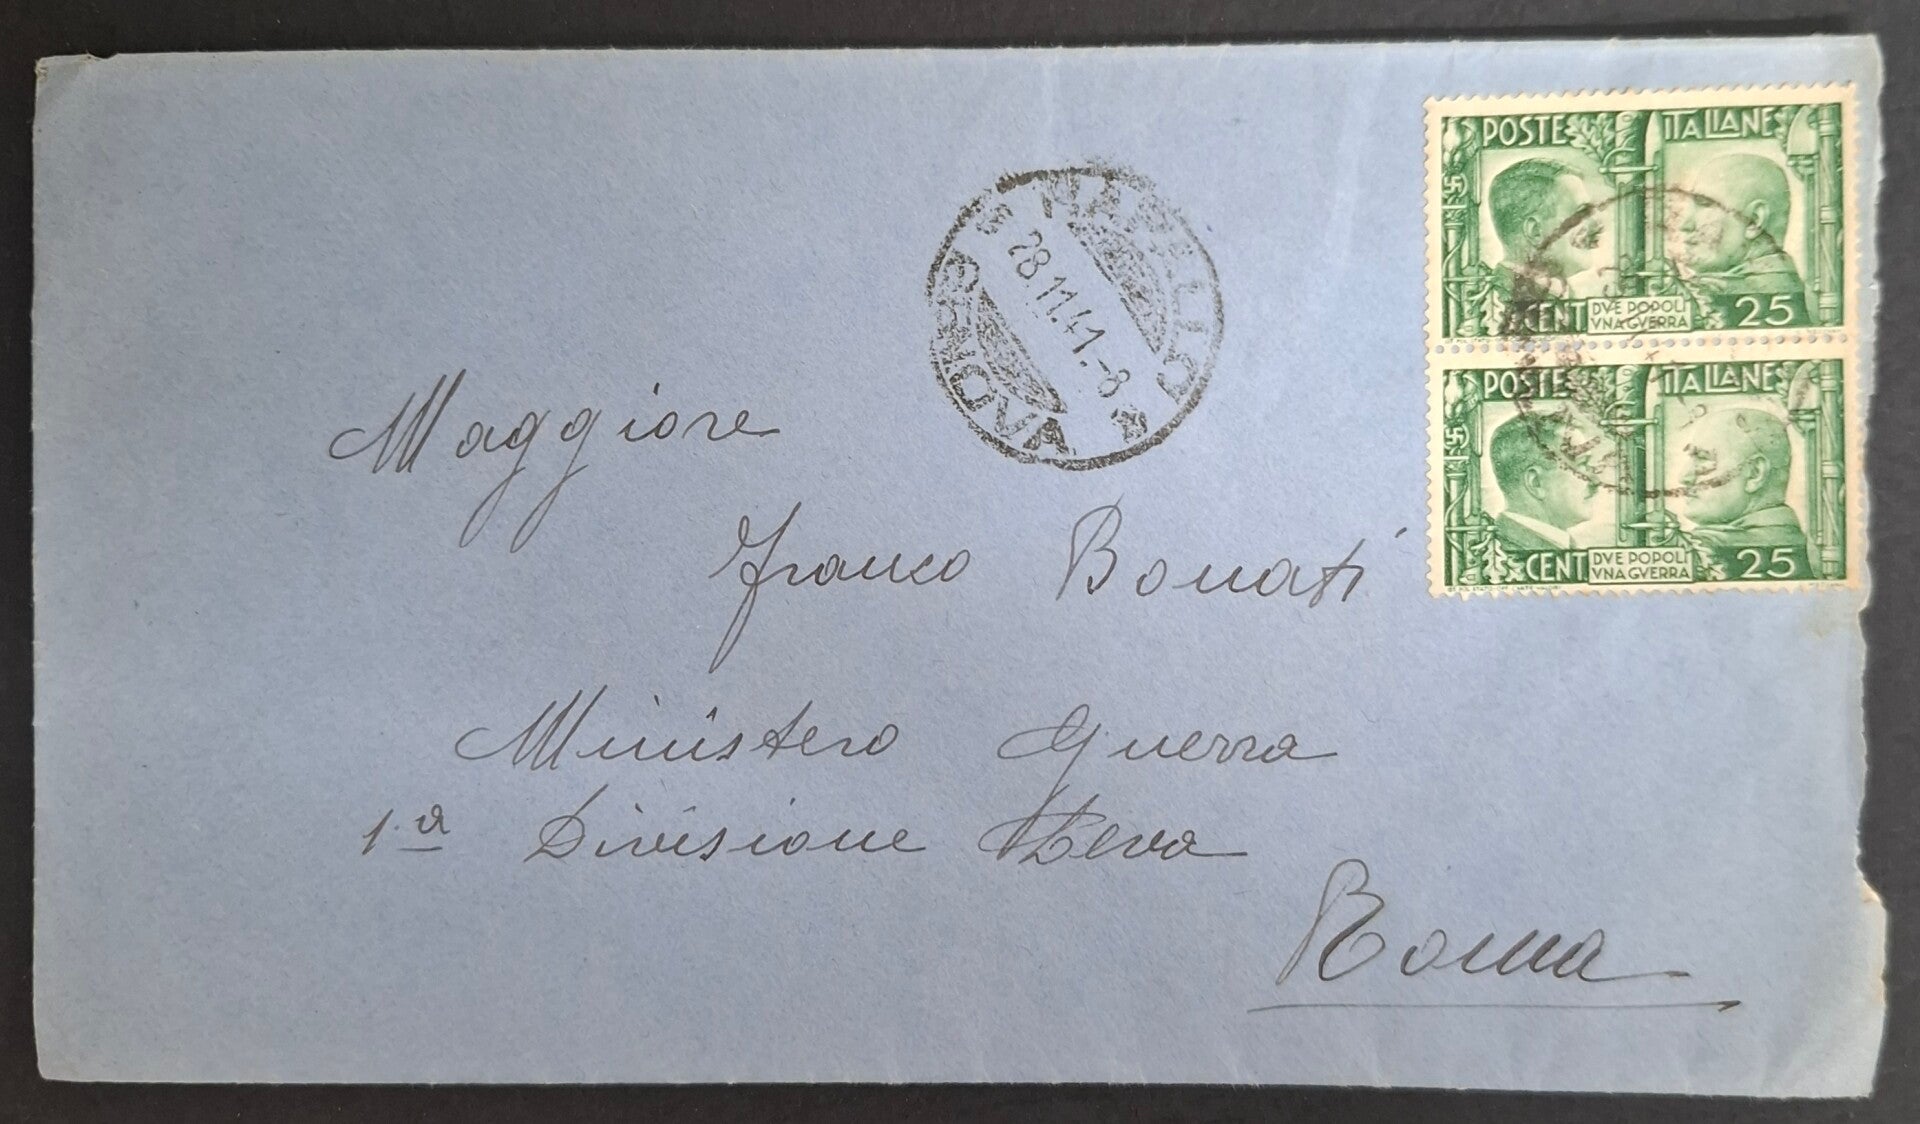 POSTE ITALIANE
CENT DVE POPOLI VNA GVERRA 25
POSTE ITALIANE
CENT DVE POPOLI VNA GVERRA 25
28.11.41.-8
Maggiore
Franco Bonati
Ministero Guerra
1ª Divisione Leva
Roma